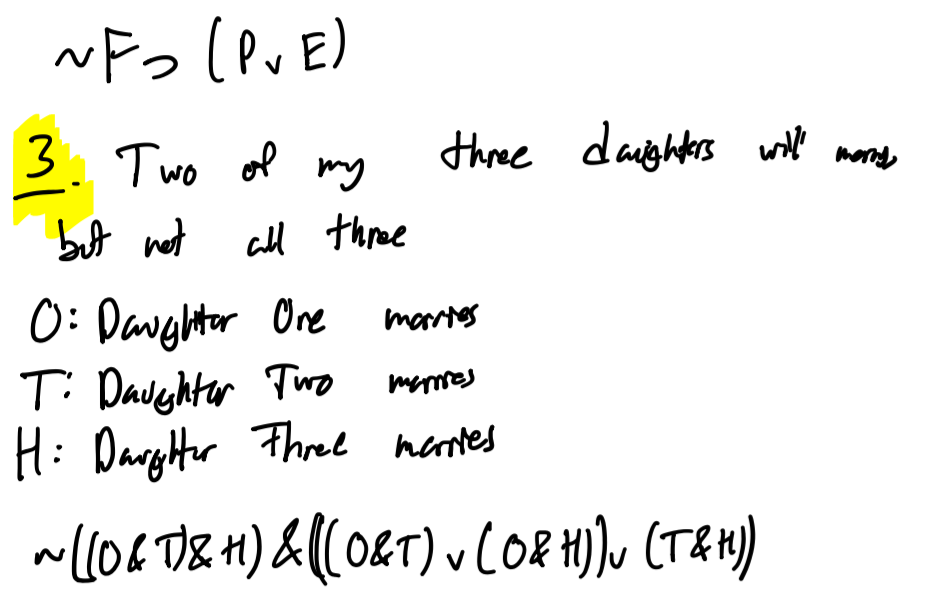 ~F⊃(P∨E)
3. Two of my three daughters will marry
but not all three
O: Daughter One marries
T: Daughter Two marries
H: Daughter Three marries
~((O&T)&H)&(((O&T)∨(O&H))∨(T&H))